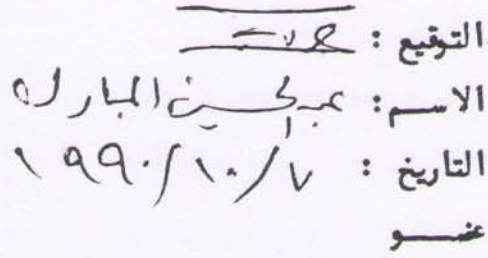 التوقيع :
الاسم : عبد الحسين المبارك
التاريخ : ١٩٩٠/١٠/٧
عضو